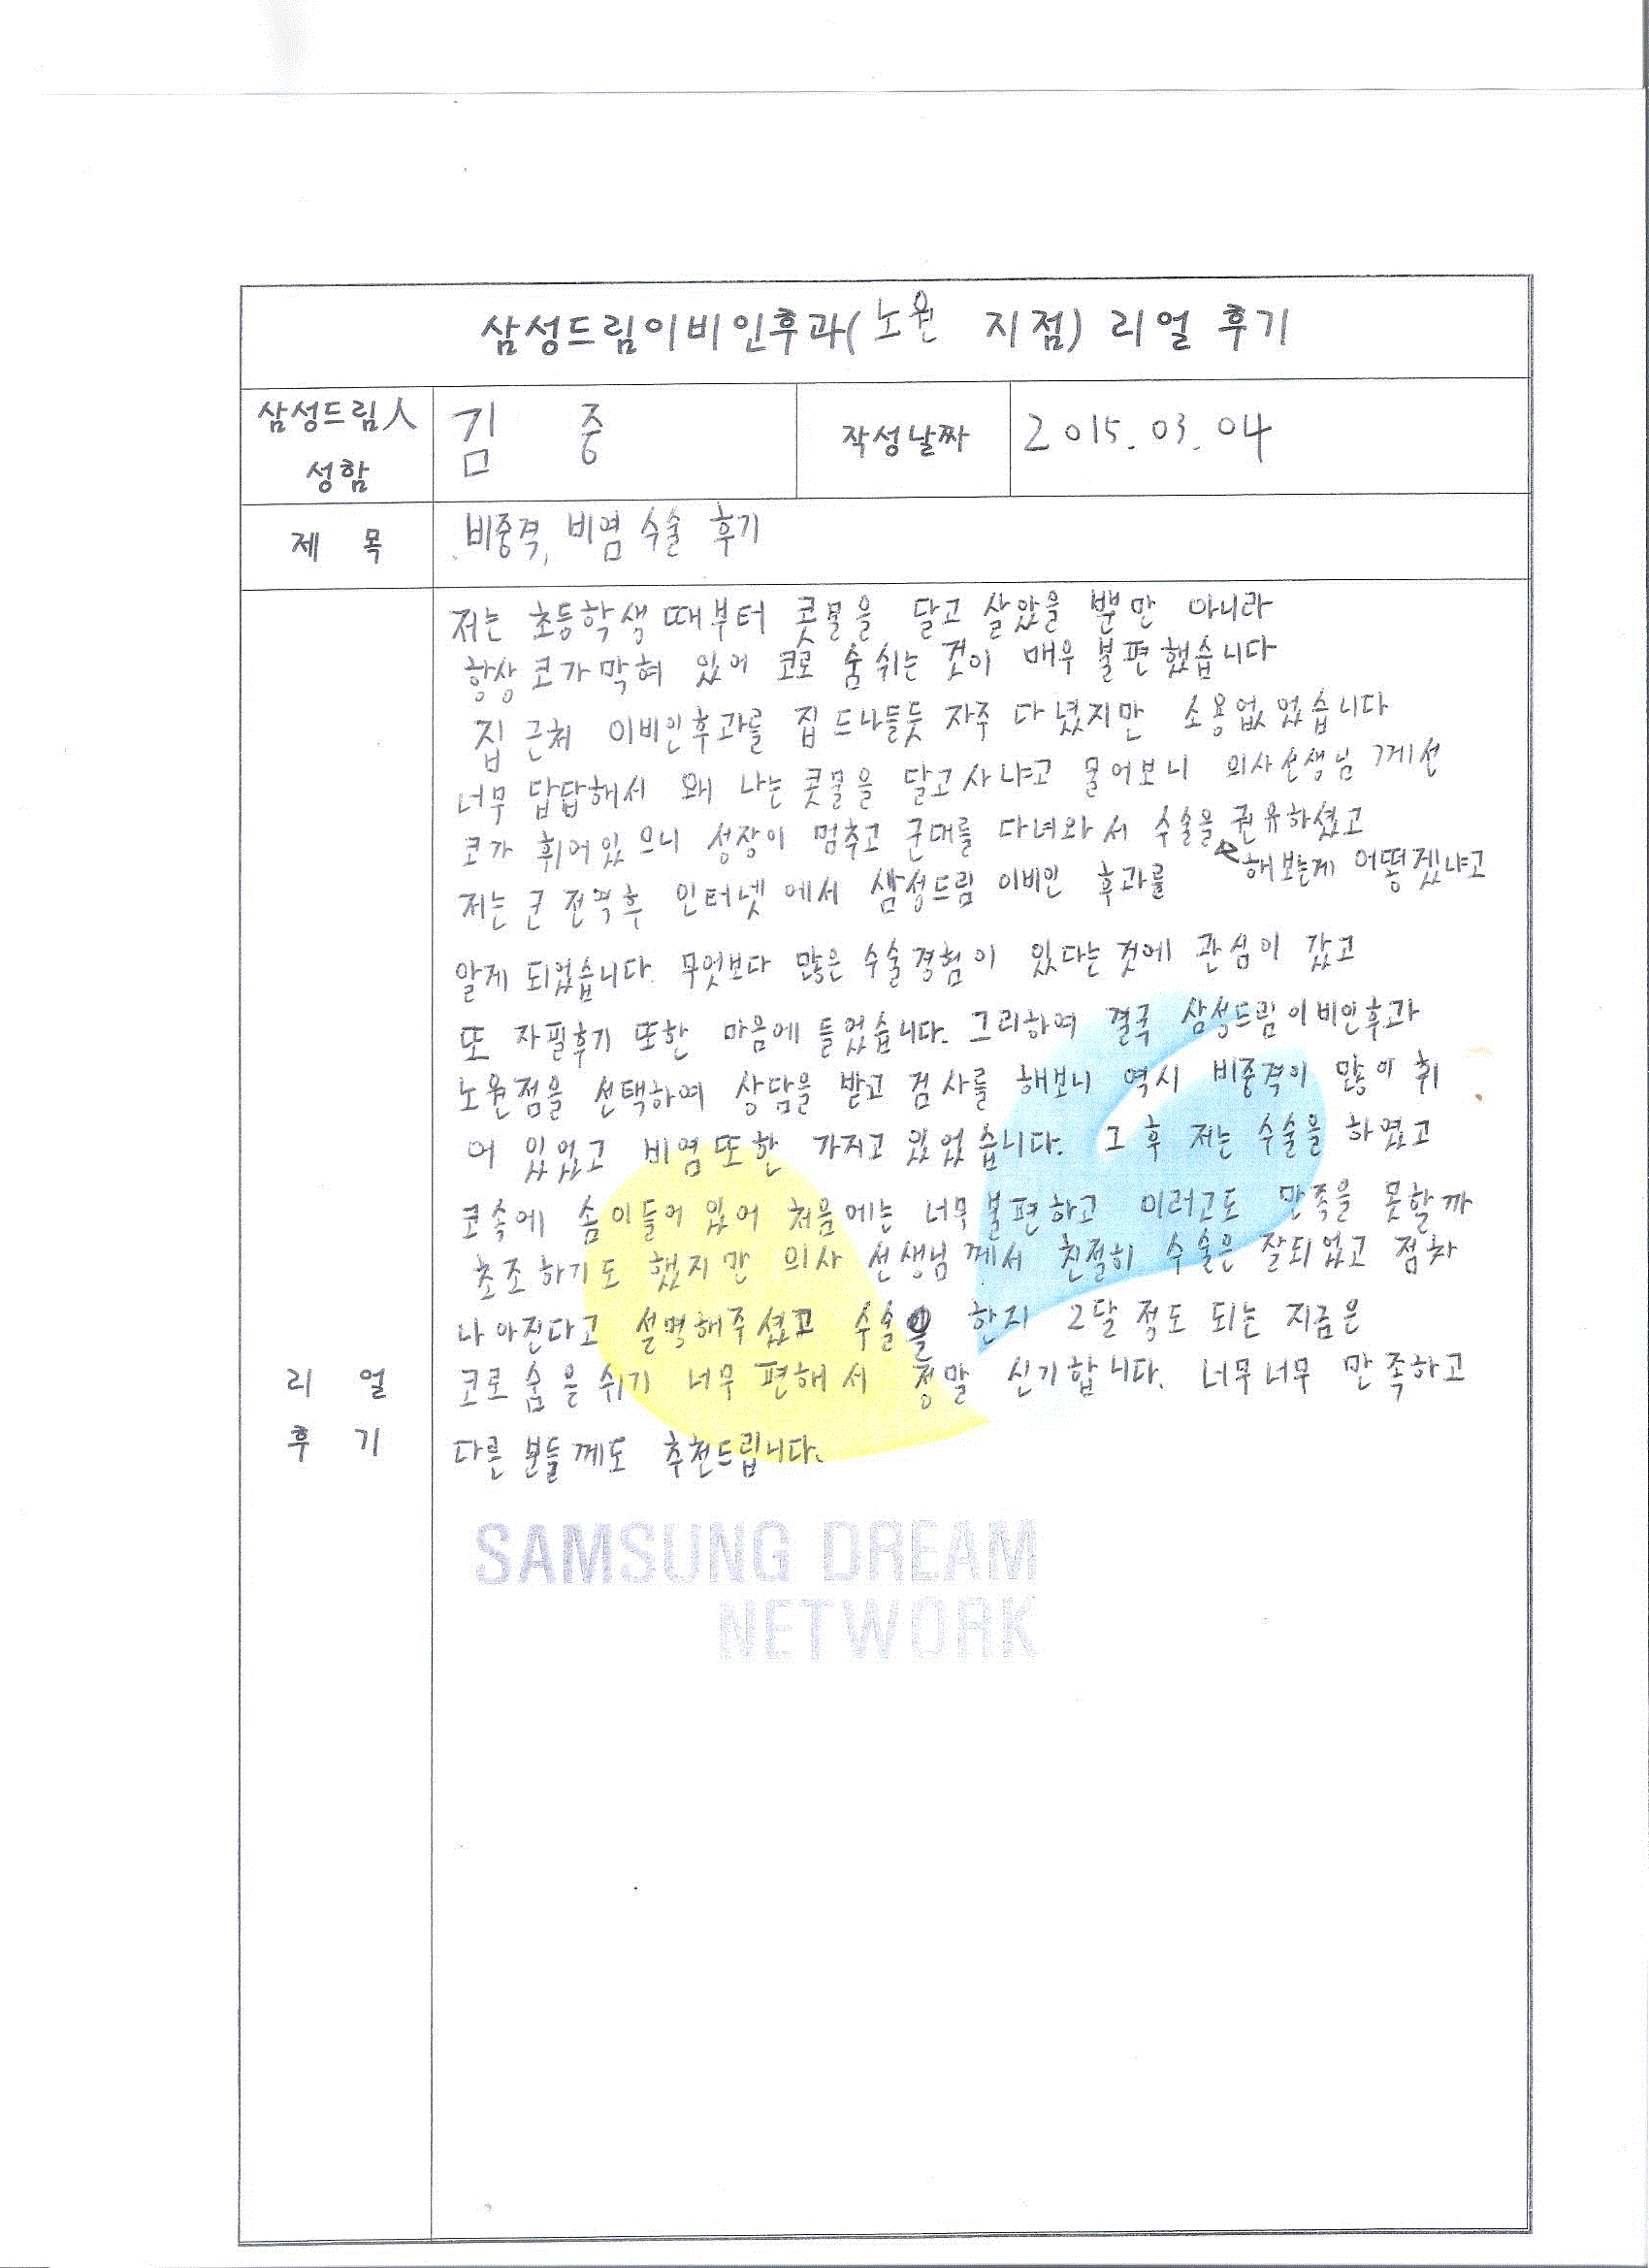 삼성드림이비인후과(노원 지점) 리얼 후기
삼성드림人
성함
김 중
작성날짜
2015.03.04
제 목
비중격, 비염 수술 후기
저는 초등학생때부터 콧물을 달고 살았을 뿐만 아니라
항상 코가 막혀 있어 코로 숨쉬는 것이 매우 불편했습니다
집 근처 이비인후과를 집 드나들듯 자주 다녔지만 소용없었습니다
너무 답답해서 왜 나는 콧물을 달고사냐고 물어보니 의사선생님께선
코가 휘어있으니 성장이 멈추고 군대를 다녀와서 수술을 권유하셨고
해보는게 어떻겠냐고
저는 군 전역후 인터넷에서 삼성드림 이비인 후과를
알게 되었습니다. 무엇보다 많은 수술경험이 있다는 것에 관심이 갔고
또 자필후기 또한 마음에 들었습니다. 그리하여 결국 삼성드림이비인후과
노원점을 선택하여 상담을 받고 검사를 해보니 역시 비중격이 많이 휘
어 있었고 비염또한 가지고 있었습니다. 그 후 저는 수술을 하였고
코속에 솜이들어 있어 처음에는 너무 불편하고 이러고도 만족을 못할까
초조하기도 했지만 의사 선생님께서 친절히 수술은 잘되었고 점차
나아진다고 설명해주셨고 수술을 한지 2달 정도 되는 지금은
코로 숨을 쉬기 너무 편해서 정말 신기합니다. 너무너무 만족하고
다른 분들께도 추천드립니다.
리 얼
후 기
SAMSUNG DREAM
NETWORK